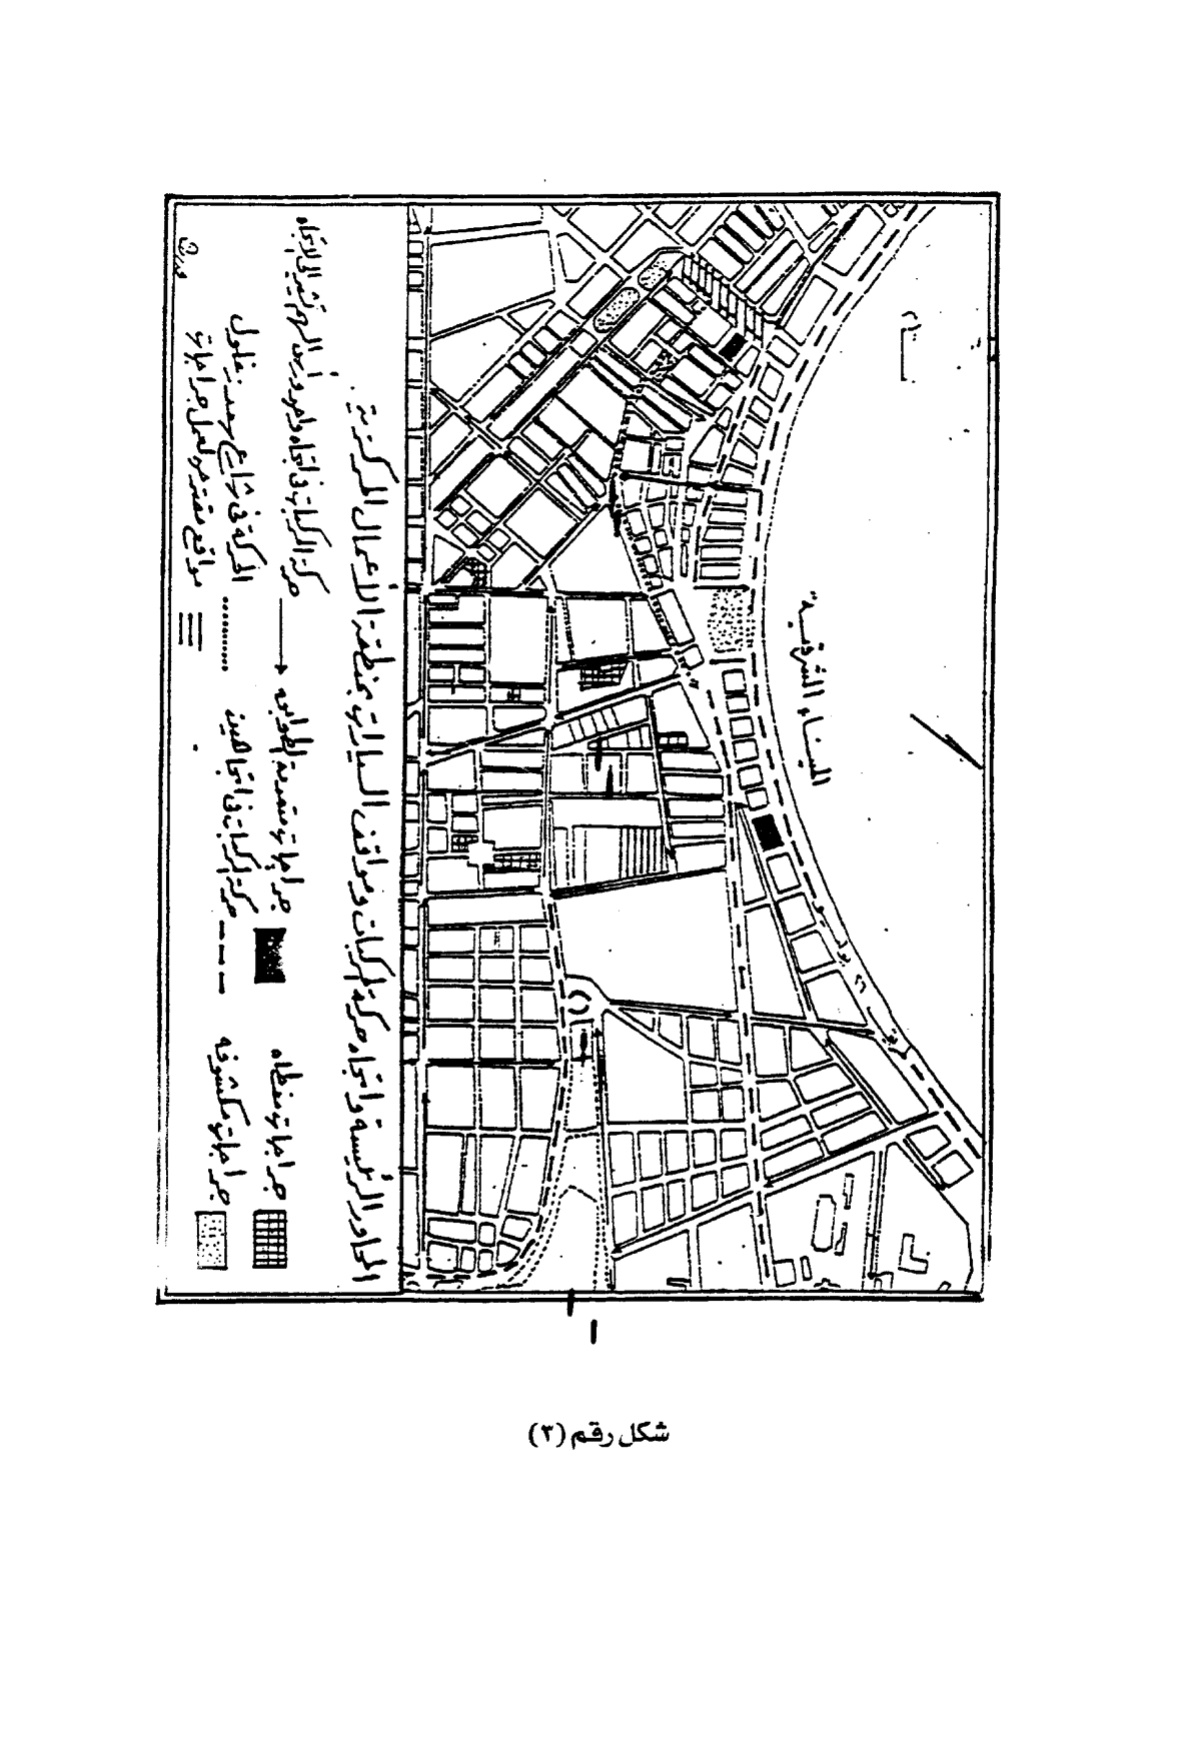 الميناء الشرقية
٢٦ يوليو
المحاور الرئيسية واتجاه حركة المركبات ومواقف السيارات بمنطقة الأعمال المركزية
جراجات مغطاه
جراجات متعددة الطوابق
حركة المركبات فى اتجاه واحد ورأس السهم تشير الى الاتجاه
جراجات مكشوفه
حركة المركبات فى اتجاهين
الحركة فى شارع سعد زغلول
مواقع مقترحه لعمل جراجات
شكل رقم (٣)